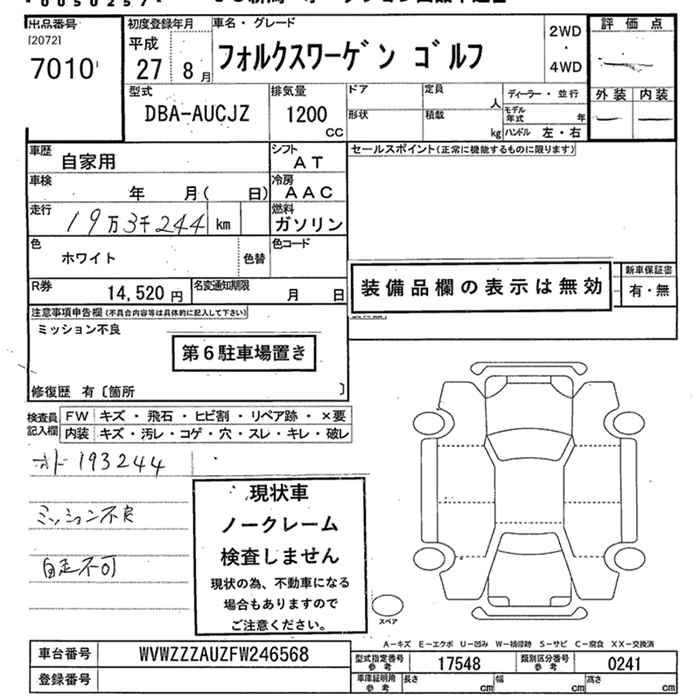 出品番号
[2072]
7010
初度登録年月
平成
27年 8月
車名・グレード
フォルクスワーゲン ゴルフ
2WD
・
4WD
評価点
外装 内装
型式
DBA-AUCJZ
排気量
1200
CC
ドア
形状
定員
人
積載
kg
ディーラー・並行
モデル年式 年
ハンドル 左・右
車歴
自家用
シフト
AT
セールスポイント(正常に機能するものに限ります)
車検
年 月( 日)
冷房
AAC
走行
19万3千244 km
燃料
ガソリン
色
ホワイト
色替
色コード
装備品欄の表示は無効
新車保証書
有・無
R券
14,520円
名変通知期限
月 日
注意事項申告欄(不具合内容等は具体的に記入して下さい)
ミッション不良
第6駐車場置き
修復歴 有〔箇所 〕
検査員記入欄
FW キズ・飛石・ヒビ割・リペア跡・×要
内装 キズ・汚レ・コゲ・穴・スレ・キレ・破レ
オド 193244
ミッション不良
自走不可
現状車
ノークレーム
検査しません
現状の為、不動車になる
場合もありますので
ご注意ください。
スペア
A-キズ E-エクボ U-凹み W-補修跡 S-サビ C-腐食 XX-交換済
車台番号
WVWZZZAUZFW246568
登録番号
型式指定番号
参考
17548
類別区分番号
参考
0241
車庫証明用
参考
長さ cm
幅 cm
高さ cm